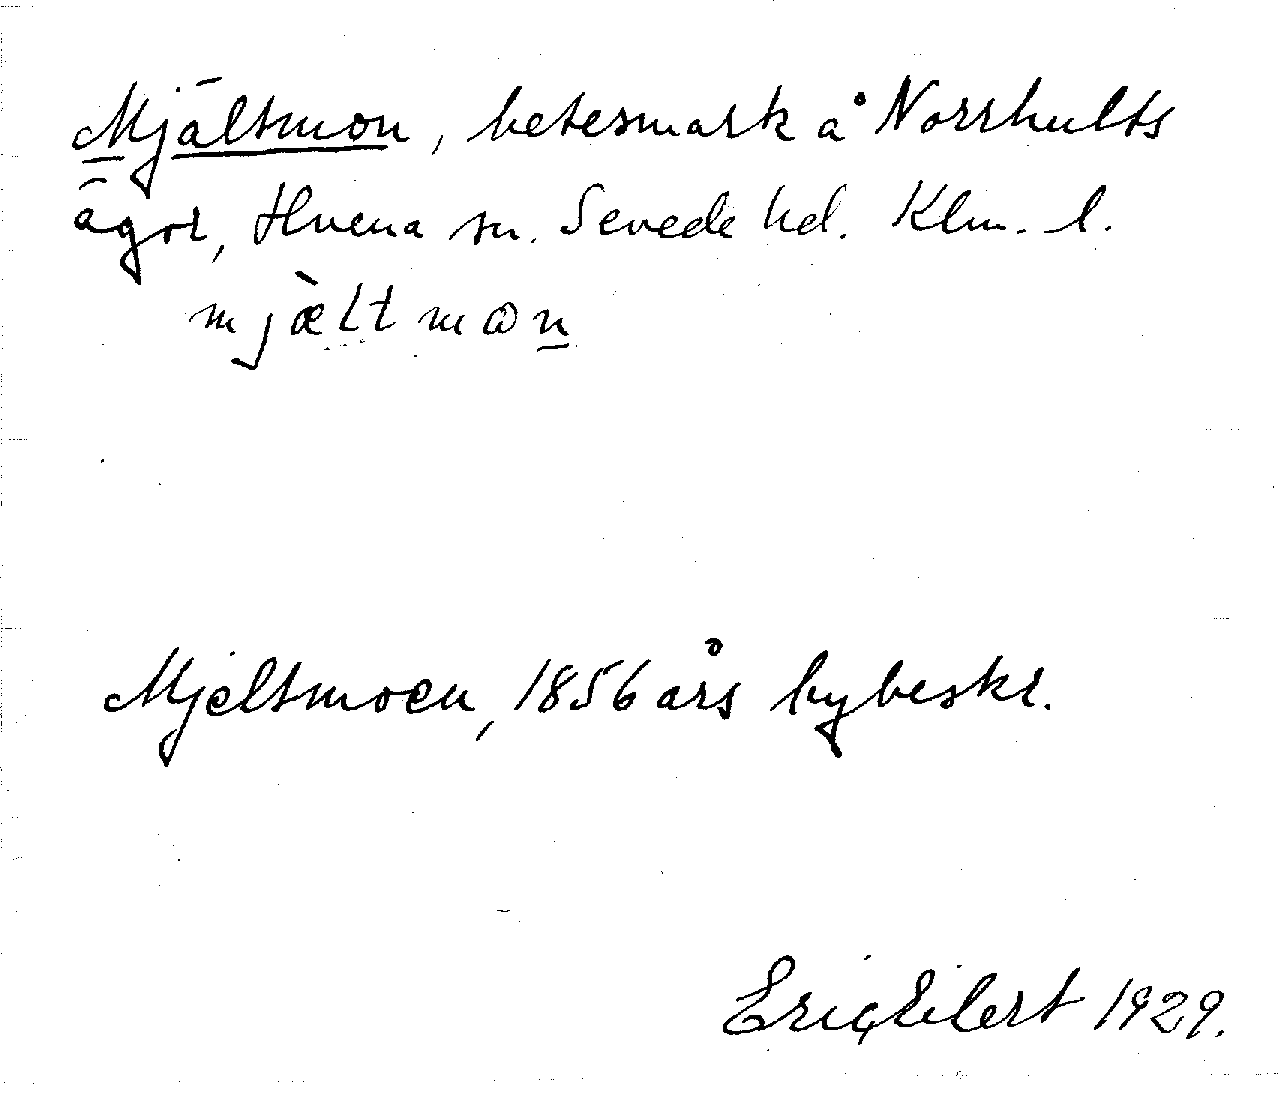 Mjältmon, betesmark å Norrhults
ägor, Hvena sn. Sevede hd. Klm. l.
mjæ̀ltmωn
Mjeltmoen, 1856 års bybeskr.
Eric Eilert 1929.